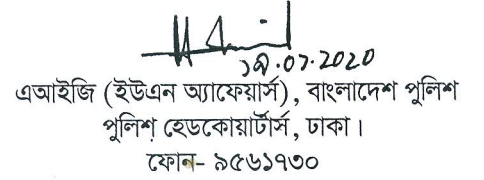 ১৯.০৭.2020
এআইজি (ইউএন অ্যাফেয়ার্স), বাংলাদেশ পুলিশ
পুলিশ হেডকোয়ার্টার্স, ঢাকা।
ফোন- ৯৫৬১৭৩০